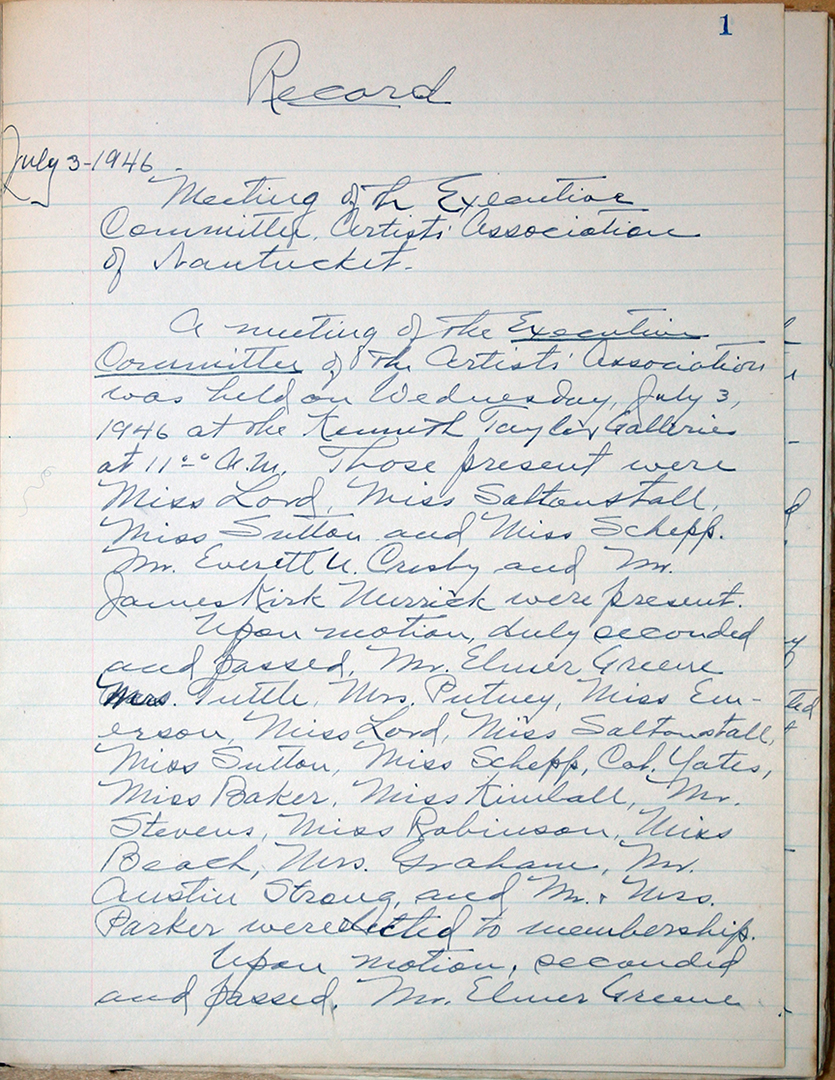 1
Record
July 3-1946
Meeting of the Executive
Committee, Artists' Association
of Nantucket.
A meeting of the Executive
Committee of the Artists' Association
was held on Wednesday, July 3,
1946 at the Kenneth Taylor Galleries
at 11:00 A.M. Those present were
Miss Lord, Miss Saltonstall,
Miss Sutton and Miss Schepp.
Mr. Everett U. Crosby and Mr.
James Kirk Merrick were present.
Upon motion, duly seconded
and passed, Mr. Elmer Greene
Mrs. Tuttle, Mrs. Putney, Miss Em-
erson, Miss Lord, Miss Saltonstall,
Miss Sutton, Miss Schepp, Col. Yates,
Miss Baker, Miss Kimball, Mr.
Stevens, Miss Robinson, Miss
Beach, Mrs. Graham, Mr.
Austin Strong, and Mr. & Mrs.
Parker were elected to membership.
Upon motion, seconded
and passed, Mr. Elmer Greene
ted